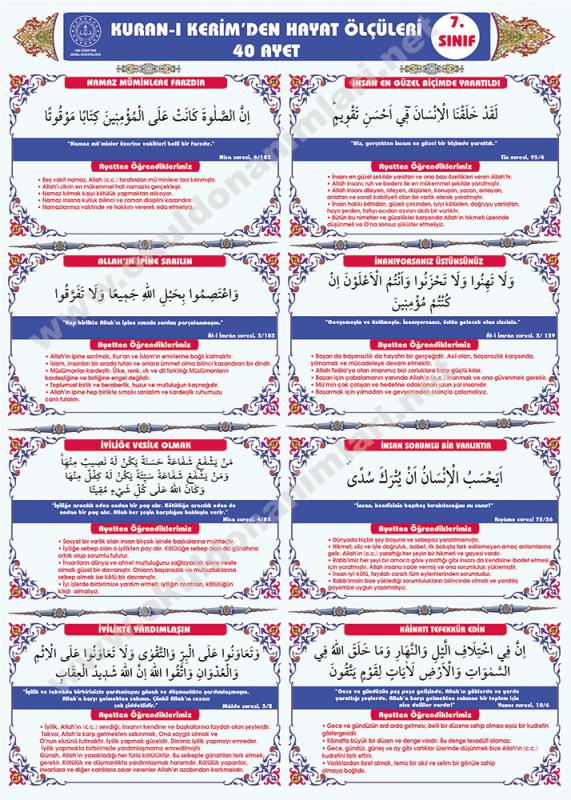 KURAN-I KERİM'DEN HAYAT ÖLÇÜLERİ
40 AYET
7.
SINIF
NAMAZ MÜMİNLERE FARZDIR
اِنَّ الصَّلٰوةَ كَانَتْ عَلَى الْمُؤْمِنٖينَ كِتَابًا مَوْقُوتًا
"Namaz mü'minler üzerine vakitleri belli bir farzdır."
Nisa suresi, 4/103
Ayetten Öğrendiklerimiz
• Beş vakit namaz, Allah (c.c.) tarafından mü'minlere farz kılınmıştır.
• Allah'ı zikrin en mükemmel hali namazla gerçekleşir.
• Namaz kılmak kişiyi kötülük yapmaktan alıkoyar.
• Namaz insana kulluk bilinci ve zaman disiplini kazandırır.
• Namazlarımızı vaktinde ve hakkını vererek eda etmeliyiz.
İNSAN EN GÜZEL BİÇİMDE YARATILDI
لَقَدْ خَلَقْنَا الْاِنْسَانَ فٖٓي اَحْسَنِ تَقْوٖيمٍ
"Biz, gerçekten insanı en güzel bir biçimde yarattık."
Tin suresi, 95/4
Ayetten Öğrendiklerimiz
• İnsanı en güzel şekilde yaratan ve ona bazı özellikleri veren Allah'tır.
• Allah insanı; ruh ve bedeni ile en mükemmel şekilde yaratmıştır.
• Allah insanı dileyen, isteyen, düşünen, konuşan, yazan, anlayan,
anlatan ve sanat kabiliyeti olan bir varlık olarak yaratmıştır.
• İnsan hakkı bâtıldan, güzeli çirkinden, iyiyi kötüden, doğruyu yanlıştan,
hayrı şerden, faziş olanı ayıran akıllı bir varlıktır.
• Bütün bu nimetler ve güzellikler karşısında Allah'ın hikmeti üzerinde
düşünmeli ve O'na sonsuz şükürler etmeliyiz.
ALLAH'IN İPİNE SARILIN
وَاعْتَصِمُوا بِحَبْلِ اللّٰهِ جَمٖيعًا وَلَا تَفَرَّقُوا
"Hep birlikte Allah'ın ipine sımsıkı sarılın; parçalanmayın."
Âl-i İmrân suresi, 3/103
Ayetten Öğrendiklerimiz
• Allah'ın ipine sarılmak, Kur'an ve İslam'ın emirlerine bağlı kalmaktır.
• İslam, insanları bir arada tutan ve onlara ümmet olma bilinci kazandıran bir dindir.
• Müslümanlar kardeştir. Ülke, renk, ırk ve dil farklılığı Müslümanların
kardeşliğine ve birliğine engel değildir.
• Toplumsal birlik ve beraberlik, huzur ve mutluluğun kaynağıdır.
• Allah'ın ipine hep birlikte sımsıkı sarılalım ve kardeşlik ruhumuzu
canlı tutalım.
İNANIYORSANIZ ÜSTÜNSÜNÜZ
وَلَا تَهِنُوا وَلَا تَحْزَنُوا وَاَنْتُمُ الْاَعْلَوْنَ اِنْ
كُنْتُمْ مُؤْمِنٖينَ
"Gevşemeyin ve üzülmeyin. İnanıyorsanız, üstün gelecek olan sizsiniz."
Âl-i İmrân suresi, 3/ 139
Ayetten Öğrendiklerimiz
• Başarı da başarısızlık da hayatın bir gerçeğidir. Asıl olan, başarısızlık karşısında,
yılmamak ve mücadeleye devam etmektir.
• Allah Teâla'ya olan imanımız bizi zorluklara karşı güçlü kılar.
• Başarı için çabalamanın yanında Allah'a (c.c.) inanmak ve ona güvenmek gerekir.
• Mü'min çok çalışan ve hedefine odaklanan uzun yol insanıdır
• Başarmak için yılmadan ve gevşemeden inançla çalışmalıyız.
İYİLİĞE VESİLE OLMAK
مَنْ يَشْفَعْ شَفَاعَةً حَسَنَةً يَكُنْ لَهُ نَصٖيبٌ مِنْهَا
وَمَنْ يَشْفَعْ شَفَاعَةً سَيِّئَةً يَكُنْ لَهُ كِفْلٌ مِنْهَا
وَكَانَ اللّٰهُ عَلٰى كُلِّ شَيْءٍ مُقٖيتًا
"İyiliğe aracılık eden ondan bir pay alır. Kötülüğe aracılık eden de
ondan bir pay alır. Allah her şeyin karşılığını hakkıyla verir."
Nisa suresi, 4/85
Ayetten Öğrendiklerimiz
• Sosyal bir varlık olan insan birçok işinde başkalarına muhtaçtır.
• İyiliğe sebep olan o iyilikten pay alır. Kötülüğe sebep olan da günahına
ortak olup sorumlu tutulur.
• İnsanların dünya ve ahiret mutluluğunu sağlayacak işlere vesile
olmak güzel bir davranıştır. Onların başarısızlık ve mutsuzluklarına
sebep olmak ise kötü bir davranıştır.
• İyi işlerde birbirimize yardım etmeli; iyiliğin anahtarı, kötülüğün
kilidi olmalıyız.
İNSAN SORUMLU BİR VARLIKTIR
اَيَحْسَبُ الْاِنْسَانُ اَنْ يُتْرَكَ سُدًى
"İnsan, kendisinin başıboş bırakılacağını mı sanır!"
Kıyâme suresi 75/36
Ayetten Öğrendiklerimiz
• Dünyada hiçbir şey boşuna ve sebepsiz yaratılmamıştır.
• Hikmet; söz ve işte doğruluk, isabet, ilk bakışta fark edilemeyen amaç anlamlarına
gelir. Allah'ın (c.c.) yarattığı her şeyin bir hikmeti ve gayesi vardır.
• Rabb'imiz her şeyi bir amaca göre yarattığı gibi insanı da kendisine ibadet etmesi
için yaratmıştır. Allah insana irade vermiş ve onu sorumluluk yüklemiştir.
• İnsan iyi-kötü, faydalı-zararlı tüm eylemlerinden sorumludur.
• Rabb'imizin bize yüklediği sorumlulukların bilincinde olmalı ve yaratılış
gayemize uygun yaşamalıyız.
İYİLİKTE YARDIMLAŞIN
وَتَعَاوَنُوا عَلَى الْبِرِّ وَالتَّقْوٰى وَلَا تَعَاوَنُوا عَلَى الْاِثْمِ
وَالْعُدْوَانِ وَاتَّقُوا اللّٰهَ اِنَّ اللّٰهَ شَدٖيدُ الْعِقَابِ
"İyilik ve takvada birbirinizle yardımlaşın; günah ve düşmanlıkta yardımlaşmayın.
Allah'a karşı gelmekten sakının. Çünkü Allah'ın cezası
çok şiddetlidir."
Mâide suresi, 5/2
Ayetten Öğrendiklerimiz
• İyilik, Allah'ın (c.c.) sevdiği, insanın kendine ve başkalarına faydalı olan şeylerdir.
Takva; Allah'a karşı gelmekten sakınmak, Ona saygılı olmak ve
O'nun sözünü tutmaktır. İyilik yapmak güzeldir. Dinimiz iyilik yapmayı emreder.
İyilik yapmakta birbirimizle yardımlaşmamız emredilmiştir.
Günah, Allah'ın yasakladığı her türlü kötülüktür. Bu sebeple günahları terk etmek
gerekir. Kötülük ve düşmanlıkta yardımlaşmak haramdır. Kötülük yapanlar,
insanlara ve diğer canlılara zarar verenler Allah'ın azabından korkmalıdır.
KÂİNATI TEFEKKÜR EDİN
اِنَّ فٖي اخْتِلَافِ الَّيْلِ وَالنَّهَارِ وَمَا خَلَقَ اللّٰهُ فِي
السَّمٰوَاتِ وَالْاَرْضِ لَاٰيَاتٍ لِقَوْمٍ يَتَّقُونَ
"Gece ve gündüzün peş peşe gelişinde, Allah'ın göklerde ve yerde
yarattığı şeylerde, Allah'a karşı gelmekten sakınan bir toplum için
nice deliller vardır!"
Yunus suresi, 10/6
Ayetten Öğrendiklerimiz
• Gece ve gündüzün ard arda gelmesi, belli bir düzene sahip olması eşsiz bir kudretin
göstergesidir.
• Kâinatta büyük bir düzen ve denge vardır. Bu denge tesadüfi olamaz.
• Gece, gündüz, güneş ve ay gibi varlıklar üzerinde düşünmek bize Allah'ın (c.c.)
kudretini fark ettirir.
• Varlıklardan ibret almak, temiz bir akıl ve selim bir gönüle sahip
olmaya bağlıdır.
www.okuldonanimlari.net